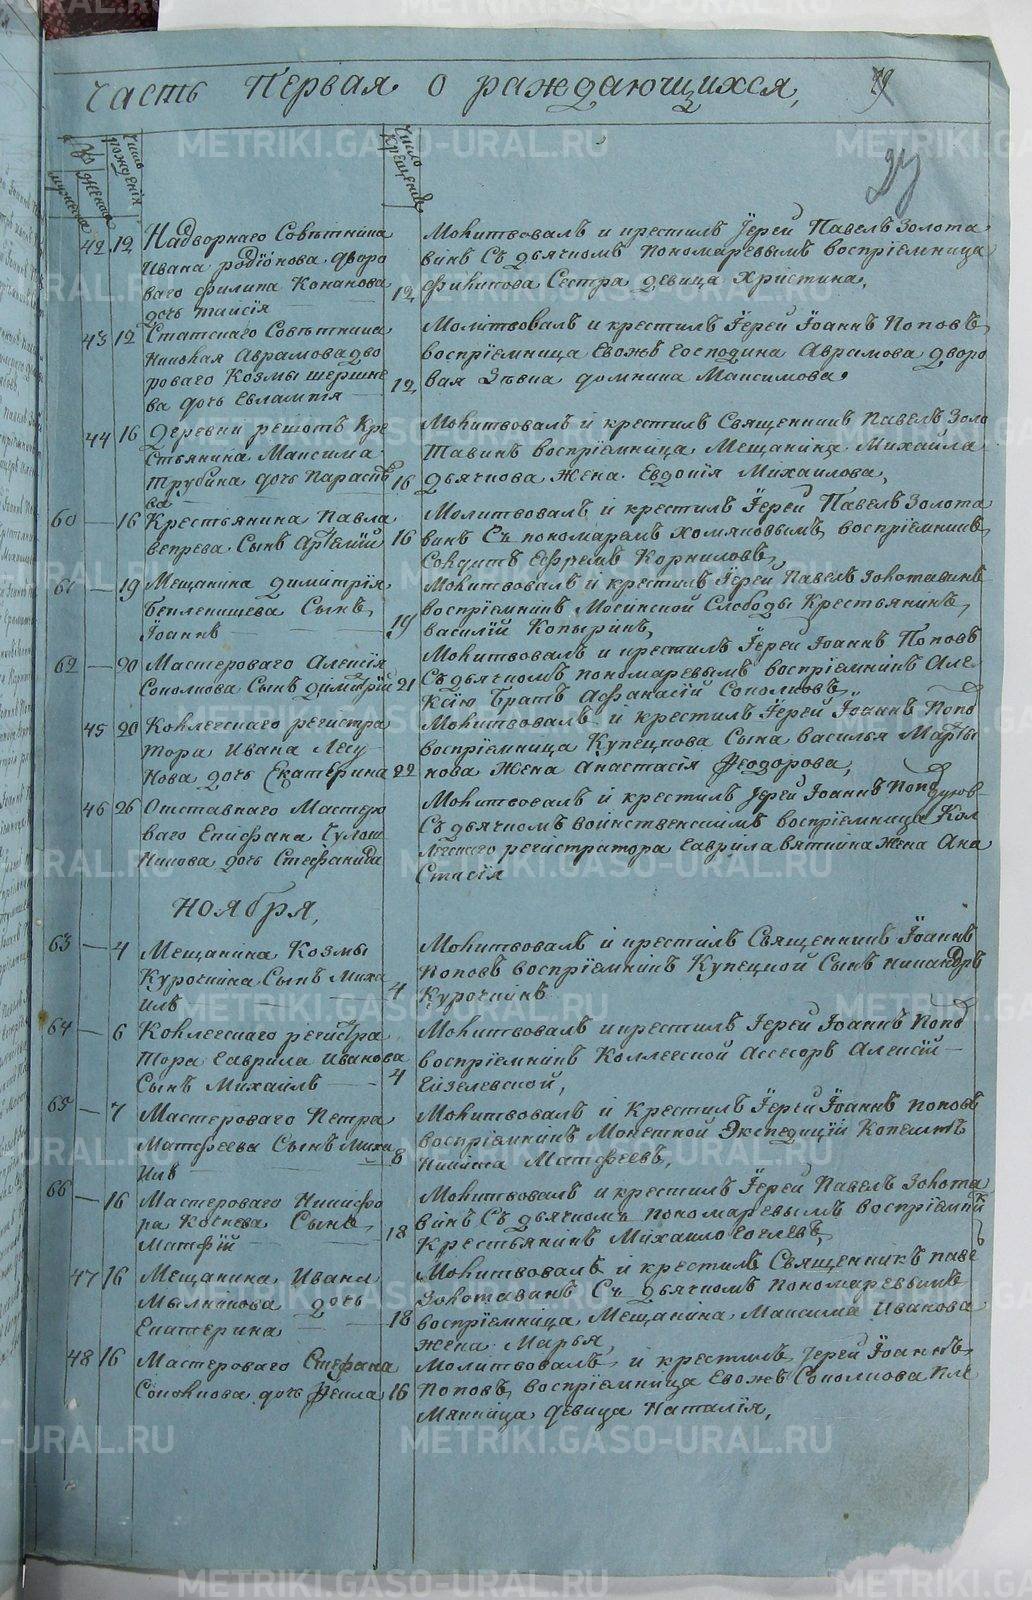 Часть Первая о раждающихся,
29
27
мужеска
женска
Число рождения
Число крещения
42 12 Надворнаго Совѣтника
Ивана родіонова дворо
ваго филипа Конанова
дочь таисія
12 Молитвовалъ и крестилъ Іерей Павелъ Золота
винъ Съ дьячкомъ пономаревымъ воспріемница
филипова Сестра девица Христина,
43 12 Статскаго Совѣтника
Николая Аврамова дво
роваго Козмы шершне
ва дочь Евлампія
12 Молитвовалъ и крестилъ Іерей Іоаннъ Поповъ
воспріемница Евожъ господина Аврамова дворо
вая домнина Максимова,
44 16 деревни решотъ Кре
стьянина Максима
трубина дочь Параске
ва
16 Молитвовалъ и крестилъ Священникъ Павелъ Золо
тавинъ воспріемница Мещанина Михайла
дьячкова жена Евдокія Михайлова,
60 16 Крестьянина Павла
вепрева Сынъ Артемій
16 Молитвовалъ и крестилъ Іерей Павелъ Золота
винъ Съ пономаремъ Хомяковымъ воспріемникъ
Солдатъ Ефремъ Корниловъ,
61 19 Мещанина димитрія
беклемишева Сынъ,
Іоаннъ
19 Молитвовалъ и крестилъ Іерей Павелъ Золотавинъ
воспріемникъ Слободы Крестьянинъ,
василій Копыринъ,
62 20 Мастероваго Алексія
Соколкова Сынъ димитрій
21 Молитвовалъ и крестилъ Іерей Іоаннъ Поповъ
Съ дьячкомъ пономаревымъ воспріемникъ Але
ксію братъ Афанасій Соколковъ
45 20 Коллежскаго регистра
тора Ивана
нова дочь Екатерина
22 Молитвовалъ и крестилъ Іерей Іоаннъ Попо
воспріемница Купецкова Сына василья Марты
нова жена Анастасія Феодорова,
46 26 Отставнаго Мастеро
ваго Епифана Чулош
никова дочь Стефанида
Молитвовалъ и крестилъ Іерей Іоаннъ Попо
Съ дьячкомъ воинственскимъ воспріемница Кол
лежскаго регистратора Гаврила вяткина жена Ана
стасія
Ноября,
63 4 Мещанина Козмы
Курочкина Сынъ Миха
илъ
4 Молитвовалъ и крестилъ Священникъ Іоаннъ
Поповъ воспріемникъ Купецкой Сынъ никандръ
Курочкинъ
64 6 Коллежскаго регистра
тора Гаврила Иванова
Сынъ Михаилъ
4 Молитвовалъ и крестилъ Іерей Іоаннъ Попо
воспріемникъ Коллежской Ассесоръ Алексій
65 7 Мастероваго Петра
Матфеева Сынъ Миха
илъ
8 Молитвовалъ и крестилъ Іерей Іоаннъ Поповъ
воспріемникъ Монетной Экспедиціи Копеистъ
Никита Матфеевъ,
66 16 Мастероваго Никифо
ра Сынъ
Матфій
18 Молитвовалъ и крестилъ Іерей Павелъ Золота
винъ Съ дьячкомъ пономаревымъ воспріемник
ъ
Крестьянинъ Михайло
47 16 Мещанина Ивана
Мылникова дочь
Екатерина
18 Молитвовалъ и крестилъ Священникъ павел
Золотавинъ Съ дьячкомъ пономаревымъ
воспріемница Мещанина Максима Иванова
жена Марья,
48 16 Мастероваго Стефана
Соколкова дочь Фекла
16 Молитвовалъ и крестилъ Іерей Іоаннъ
Поповъ воспріемница Евожъ Соколкова пле
мянница девица Наталія,